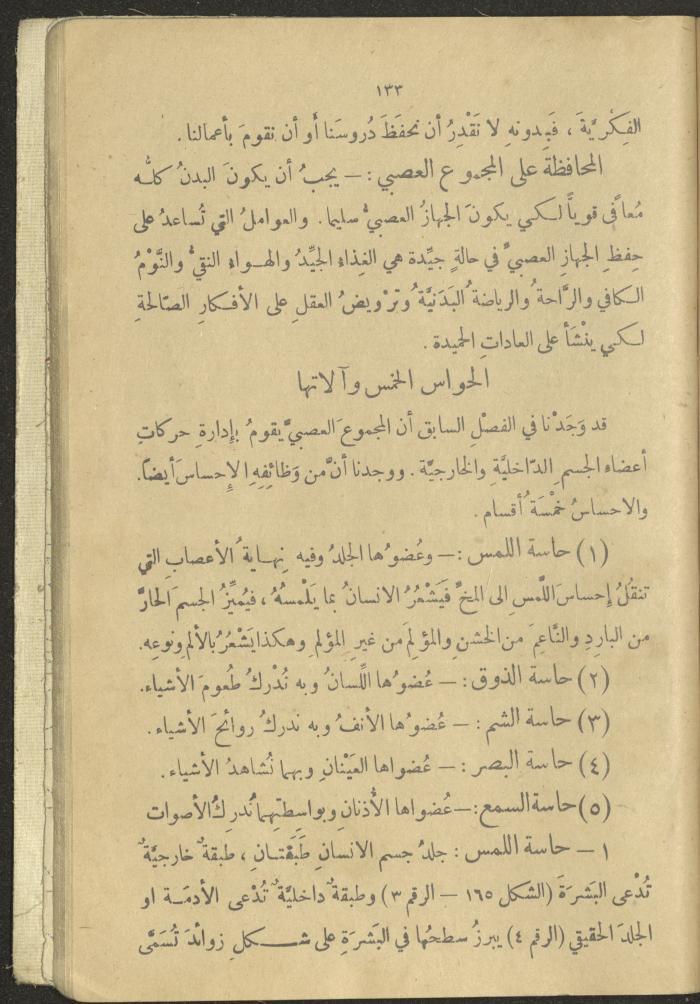 ١٣٣
الفِكْرِيَّةَ ، فَبِدونهِ لا نَقْدِرُ أن نحفَظَ دُروسَنا أو أن نقومَ بأعمالنا .
المحافظة على المجموع العصبي : — يجبُ أن يكونَ البدنُ كلُّه
مُعافًى قوياً لكي يكونَ الجهازُ العصبيُّ سليما . والعواملُ التي تُساعدُ على
حِفظِ الجهازِ العصبيِّ في حالةٍ جيِّدة هي الغِذاءِ الجيِّدُ والهواءِ النقيُّ والنَّوْمُ
الكافي والرَّاحةُ والرياضةُ البَدَنيَّةُ وترْويضُ العقلِ على الأفكارِ الصّالحةِ
لكي ينْشَأ على العاداتِ الحميدة .
الحواس الخمس وآلاتها
قد وَجَدْنا في الفصْلِ السابق أن المجموعَ العصبيَّ يقومُ بإدارةِ حركاتِ
أعضاءِ الجسمِ الدّاخليَّةِ والخارجيَّة . ووجدنا أنَّ من وَظائِفِهِ الإحساسَ أيضاً.
والاحساسُ خمْسَةُ أقسام .
(١) حاسة اللمس : — وعُضوُها الجلدُ وفيه نِهايةُ الأعصابِ التي
تنقلُ إحساسَ اللَّمسِ الى المخِّ فَيَشْعُرُ الانسانُ بما يَلْمسُهُ ، فيُميِّزُ الجسمَ الحارَّ
من الباردِ والنَّاعِمَ من الخشنِ والمؤلِمَ من غيرِ المؤلمِ وهكذا يَشْعُرُ بالألمِ ونوعِه.
(٢) حاسة الذوق : — عُضوُها اللِّسانُ وبه نُدْركُ طُعومَ الأشياء.
(٣) حاسة الشم : — عُضوُها الأنفُ وبه ندركُ روائحَ الأشياء .
(٤) حاسة البصر : — عُضواها العَيْنانِ وبهما نُشاهدُ الأشياء .
(٥) حاسة السمع : — عُضواها الأُذنانِ وبواسِطتِهِما نُدركُ الأصوات
١ — حاسة اللمس : جلدُ جسم الانسانِ طَبَقتانِ ، طبقةٌ خارجيَّةٌ
تُدْعى البَشرَةَ (الشكل ١٦٥ — الرقم ٣) وطبقةٌ داخليَّةٌ تُدْعى الأدمَة او
الجلدَ الحقيقي (الرقم ٤) يبرزُ سطحُها في البَشرَةِ على شكلِ زوائدَ تُسَمَّى